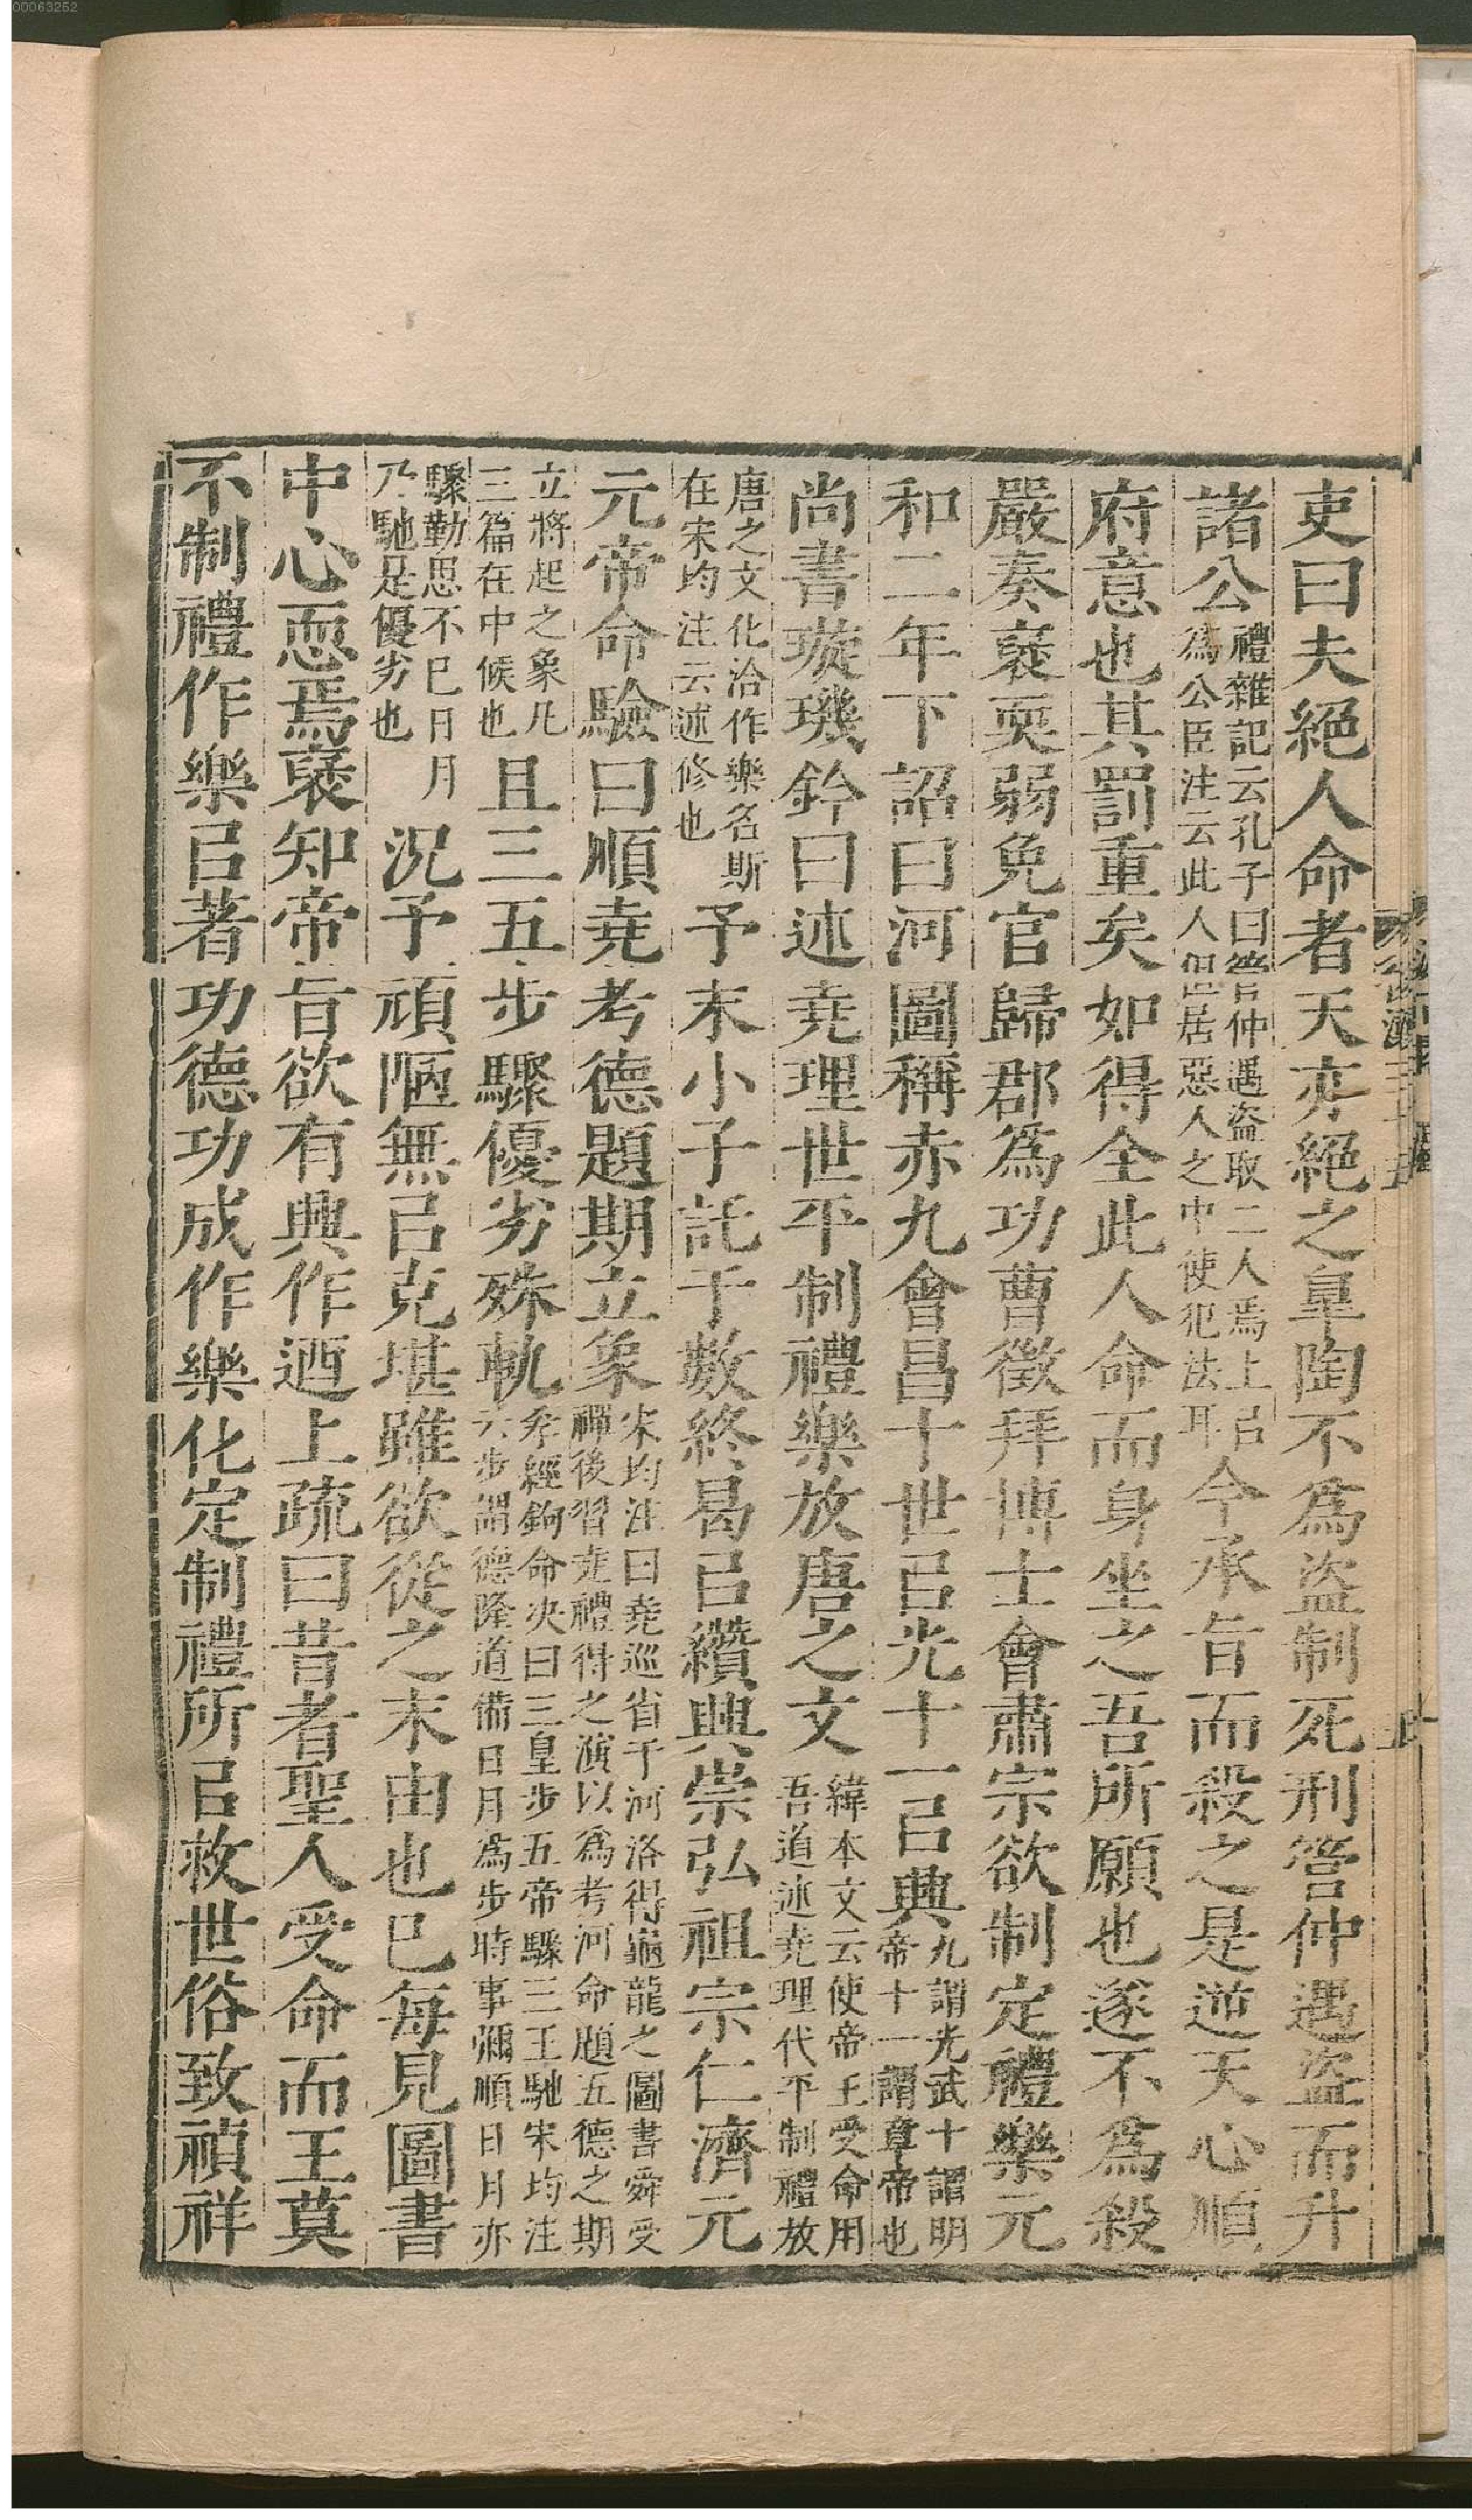 00063252
吏曰夫絕人命者天亦絕之臯陶不爲盜制死刑管仲遇盜而升
諸公禮雜記云孔子曰管仲遇盜取二人焉上㠯爲公臣注云此人但居惡人之中使犯法耳今承旨而殺之是逆天心順
府意也其罰重矣如得全此人命而身坐之吾所願也遂不爲殺
嚴奏襃耎弱免官歸郡爲功曹徵拜博士會肅宗欲制定禮樂元
和二年下詔曰河圖稱赤九會昌十世㠯光十一㠯興九謂光武十謂明帝十一謂章帝也
尚書璇璣鈐曰述堯理世平制禮樂放唐之文緯本文云使帝王受命用吾道述堯理代平制禮放
唐之文化洽作樂名斯在宋均注云述修也予末小子託于數終曷㠯纘興崇弘祖宗仁濟元
元帝命驗曰順堯考德題期立象宋均注曰堯巡省于河洛得龜龍之圖書舜受禪後習堯禮得之演以爲考河命題五德之期
立將起之象凡三篇在中候也且三五步驟優劣殊軌孝經鉤命決曰三皇步五帝驟三王馳宋均注云步謂德隆道備日月爲步時事彌順日月亦
驟勤思不已日月乃馳是優劣也況予頑陋無㠯克堪雖欲從之末由也已每見圖書
中心恧焉襃知帝旨欲有興作迺上疏曰昔者聖人受命而王莫
不制禮作樂㠯著功德功成作樂化定制禮所㠯救世俗致禎祥